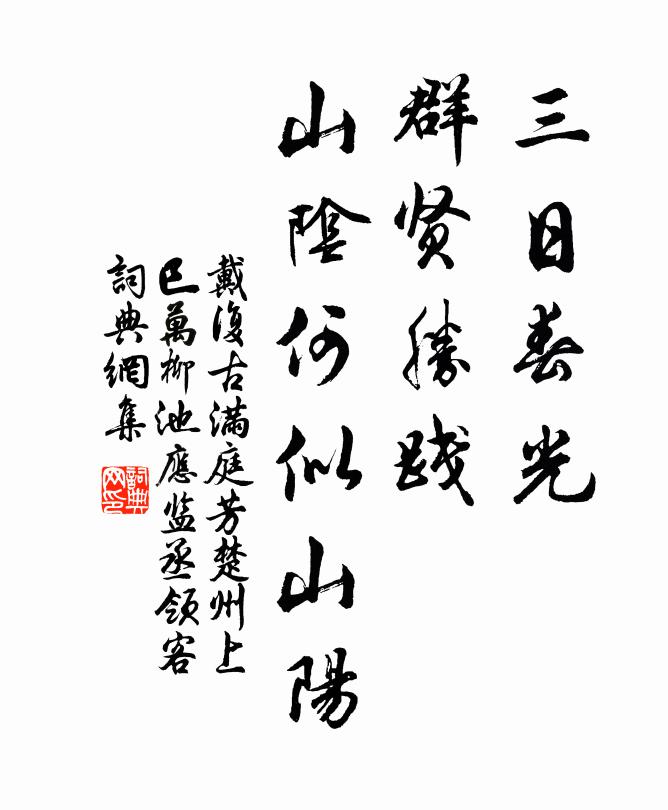 三日春光
群贤勝踐
山陰何似山陽
戴復古满庭芳楚州上
巳萬柳池應监丞領客
詞典網集
詞典
网印